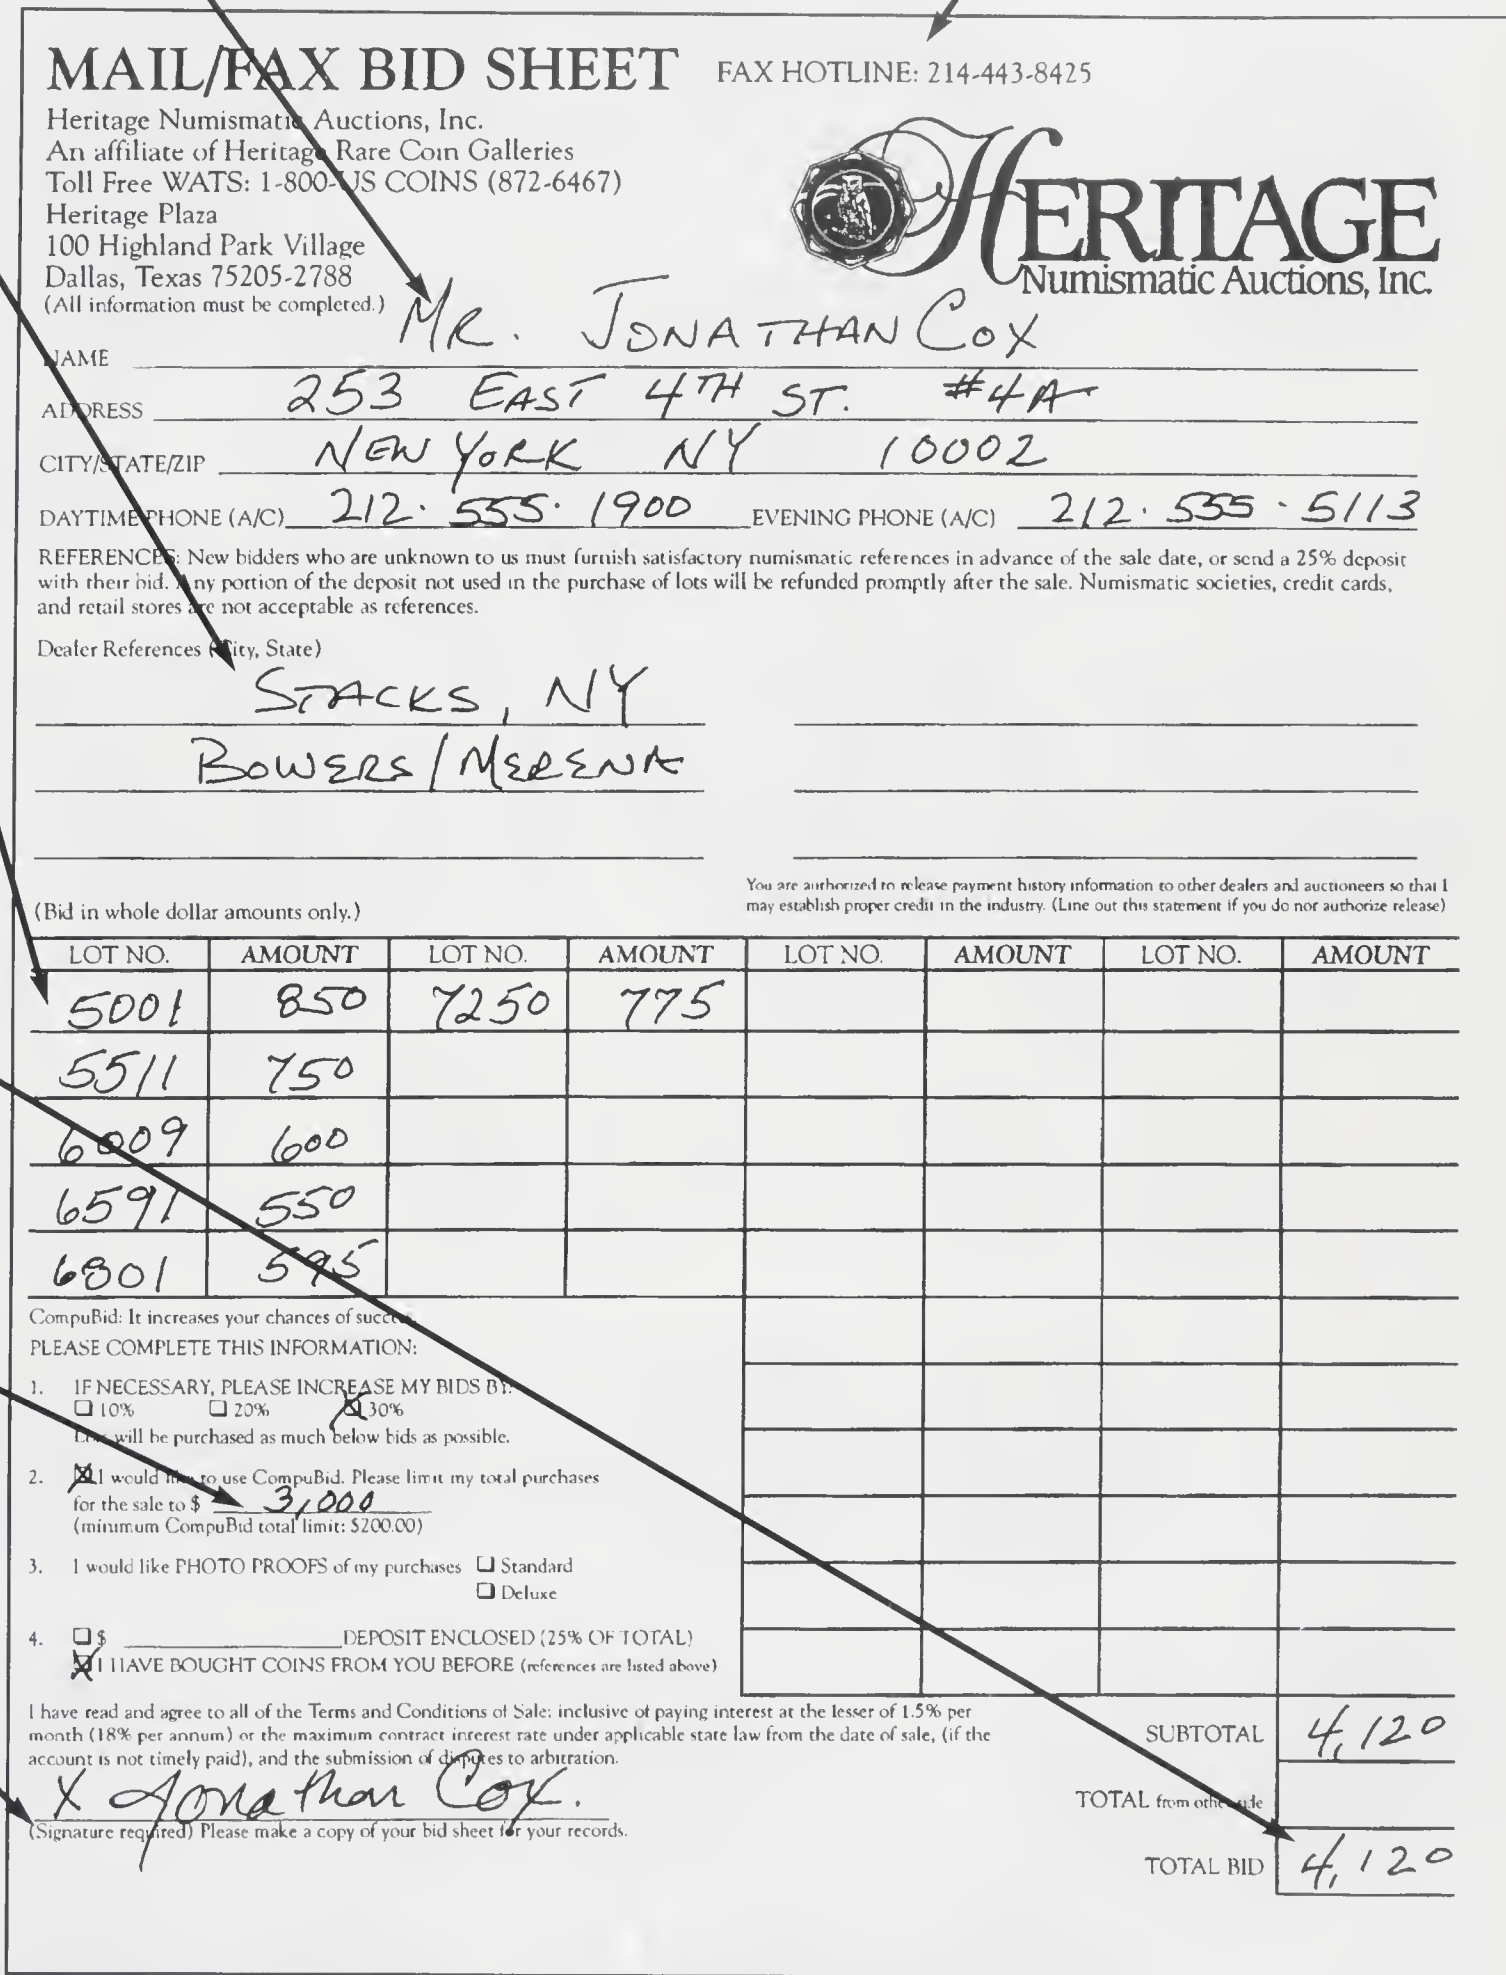 MAIL/FAX BID SHEET FAX HOTLINE: 214-443-8425
Heritage Numismatic Auctions, Inc.
An affiliate of Heritage Rare Coin Galleries
Toll Free WATS: 1-800-US COINS (872-6467)
Heritage Plaza
100 Highland Park Village
Dallas, Texas 75205-2788
(All information must be completed.)
HERITAGE
Numismatic Auctions, Inc.
NAME MR. JONATHAN COX
ADDRESS 253 EAST 4TH ST. #4A
CITY/STATE/ZIP NEW YORK NY 10002
DAYTIME PHONE (A/C) 212. 555. 1900 EVENING PHONE (A/C) 212. 555 . 5113
REFERENCES: New bidders who are unknown to us must furnish satisfactory numismatic references in advance of the sale date, or send a 25% deposit
with their bid. Any portion of the deposit not used in the purchase of lots will be refunded promptly after the sale. Numismatic societies, credit cards,
and retail stores are not acceptable as references.
Dealer References (City, State)
STACKS, NY
BOWERS/MERENA
You are authorized to release payment history information to other dealers and auctioneers so that I
may establish proper credit in the industry. (Line out this statement if you do not authorize release)
(Bid in whole dollar amounts only.)
LOT NO. AMOUNT LOT NO. AMOUNT LOT NO. AMOUNT LOT NO. AMOUNT
5001 850 7250 775
5511 750
6009 600
6591 550
6801 595
CompuBid: It increases your chances of success.
PLEASE COMPLETE THIS INFORMATION:
1. IF NECESSARY, PLEASE INCREASE MY BIDS BY:
10% 20% 30%
Lots will be purchased as much below bids as possible.
2. I would like to use CompuBid. Please limit my total purchases
for the sale to $ 3,000
(minimum CompuBid total limit: $200.00)
3. I would like PHOTO PROOFS of my purchases Standard
Deluxe
4. $ DEPOSIT ENCLOSED (25% OF TOTAL)
I HAVE BOUGHT COINS FROM YOU BEFORE (references are listed above)
I have read and agree to all of the Terms and Conditions of Sale; inclusive of paying interest at the lesser of 1.5% per
month (18% per annum) or the maximum contract interest rate under applicable state law from the date of sale, (if the
account is not timely paid), and the submission of disputes to arbitration.
X Jonathan Cox.
(Signature required) Please make a copy of your bid sheet for your records.
SUBTOTAL 4,120
TOTAL from other side
TOTAL BID 4,120